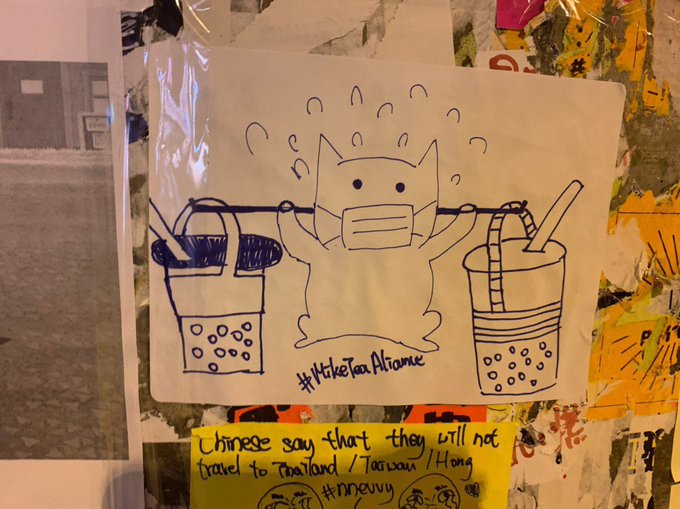 #MikeTea Aliance
Chinese say that they will not
travel to Thailand / Taiwan / Hong
#nnevvy